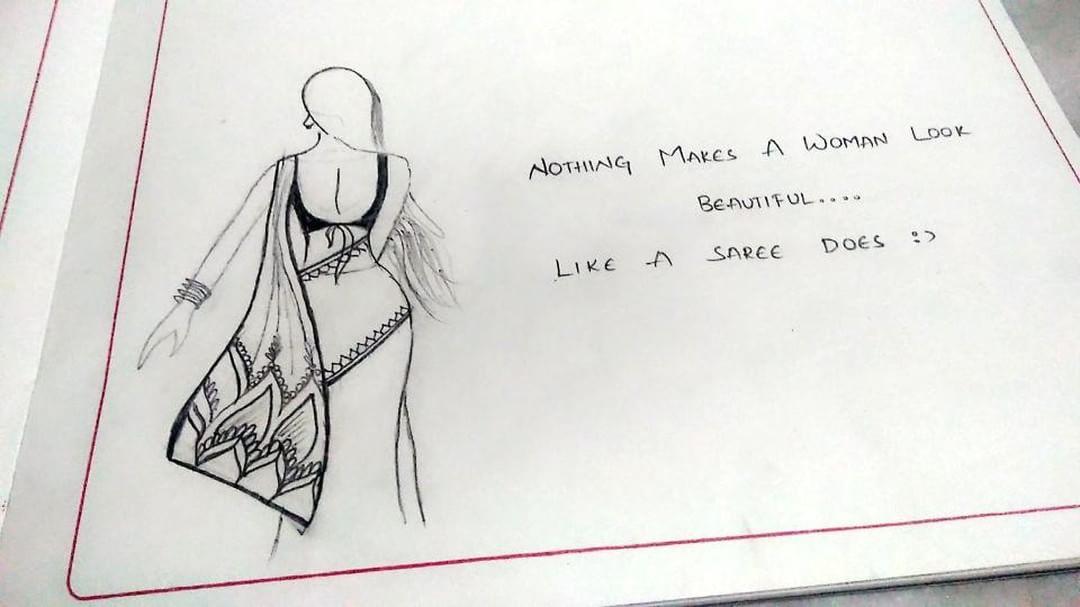 NOTHING MAKES A WOMAN LOOK
BEAUTIFUL....
LIKE A SAREE DOES :)